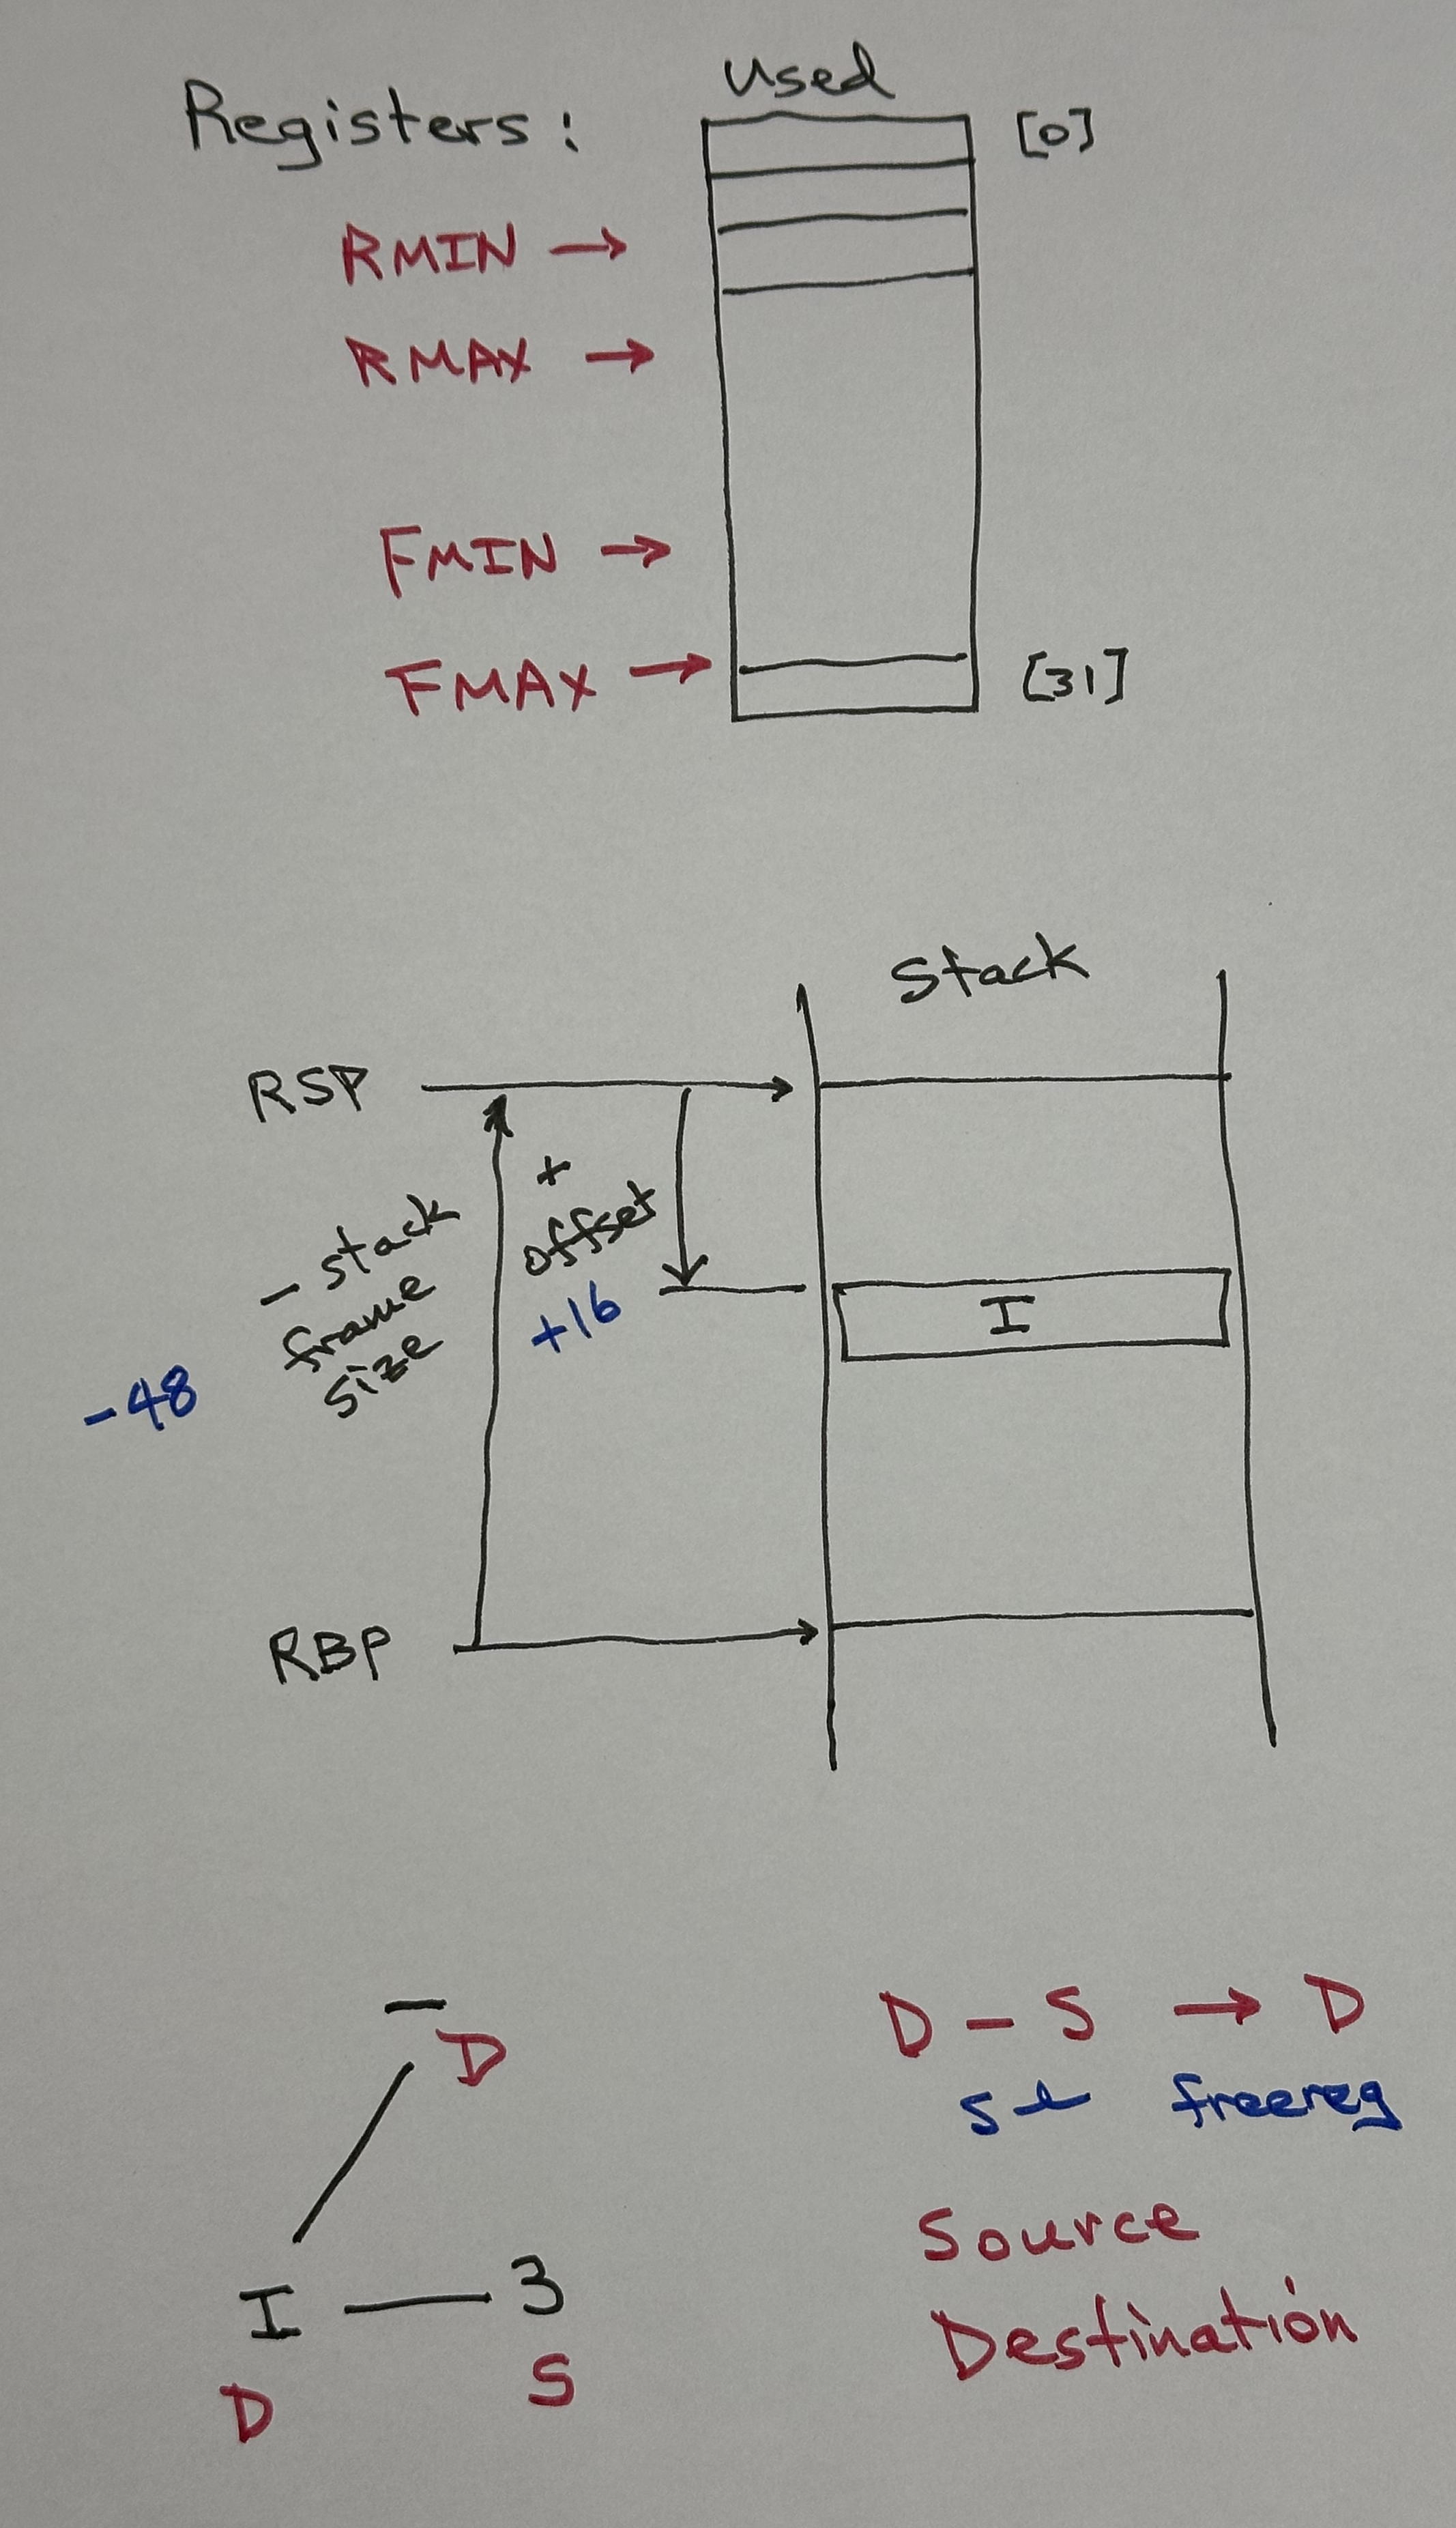 Registers:
used
[0]
RMIN →
RMAX →
FMIN →
FMAX →
[31]
Stack
RSP
+
offset
+16
- stack
frame
size
-48
I
RBP
-
D
I — 3
D
S
D - S → D
freereg
Source
Destination